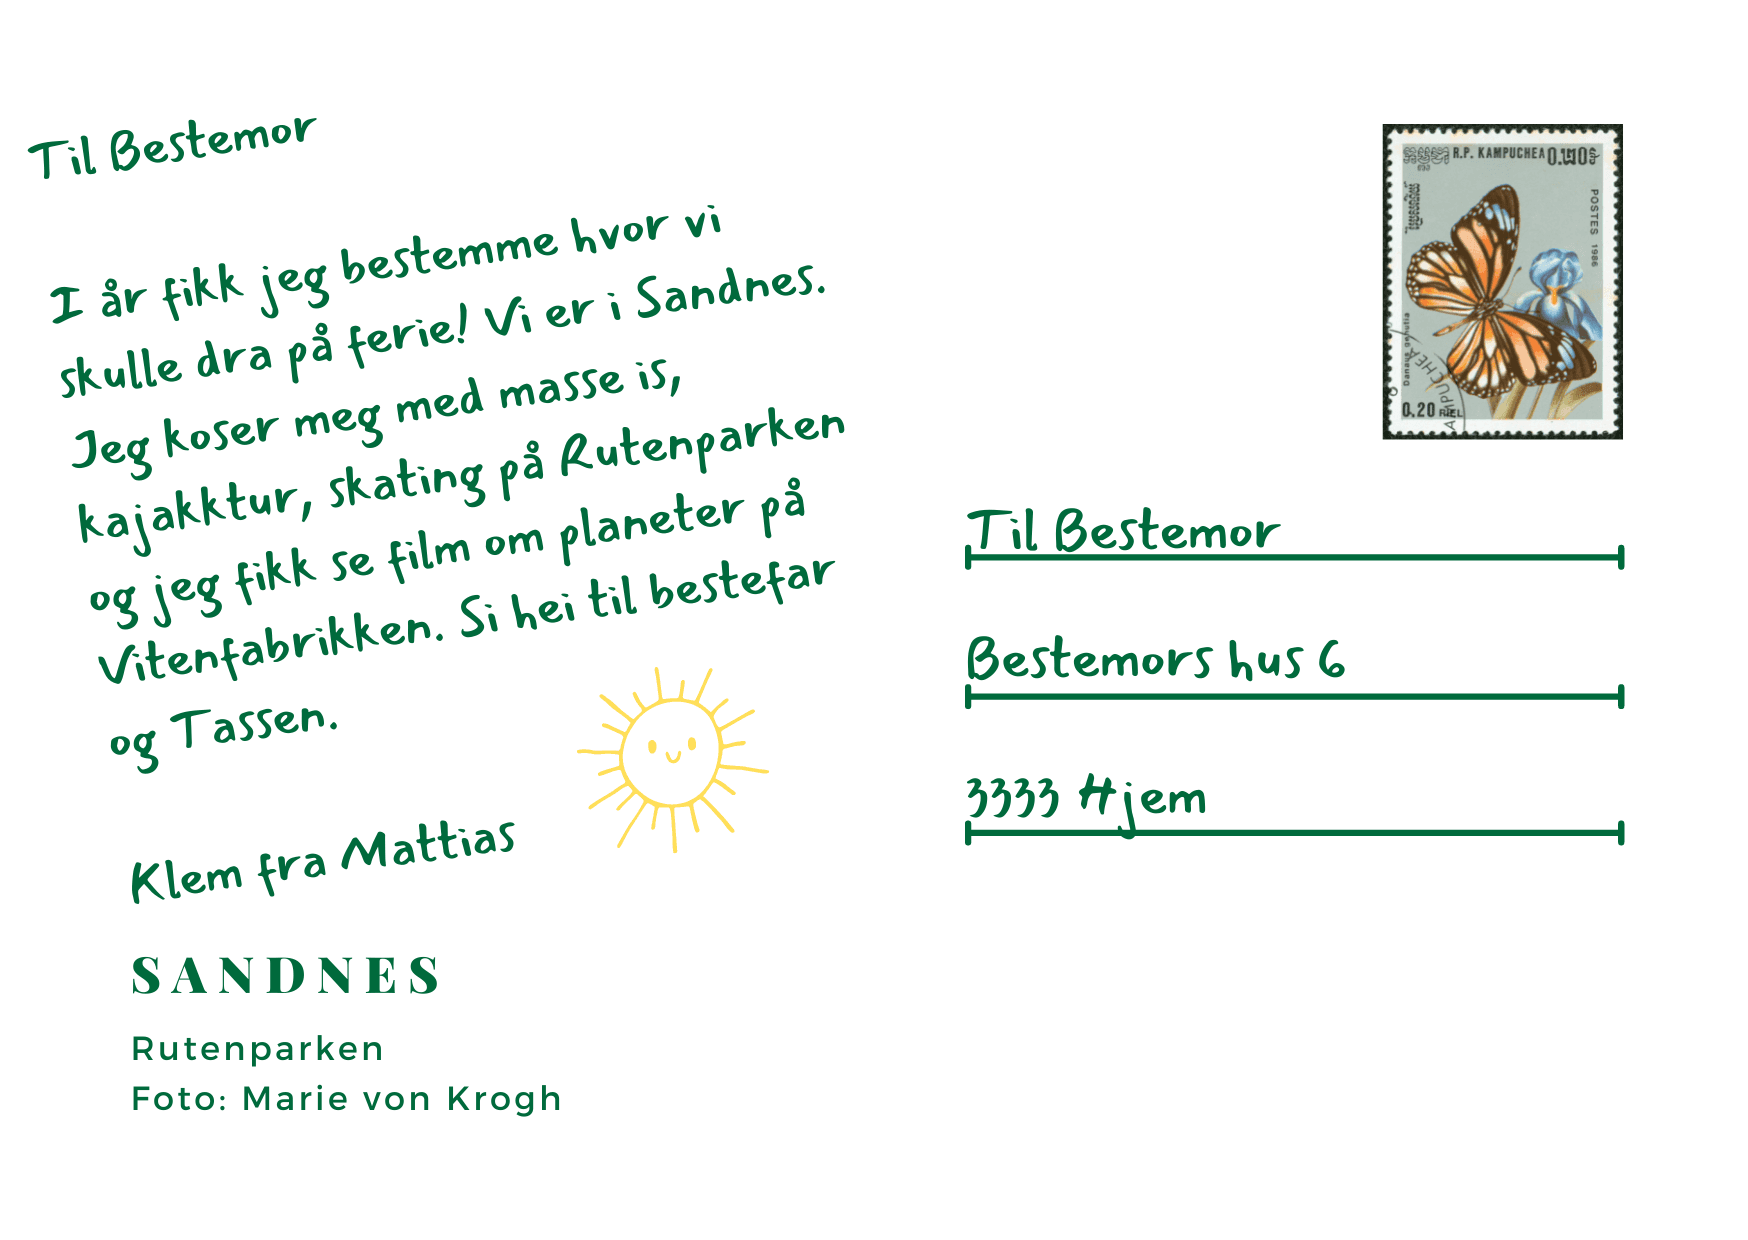 Til Bestemor
I år fikk jeg bestemme hvor vi
skulle dra på ferie! Vi er i Sandnes.
Jeg koser meg med masse is,
kajakktur, skating på Rutenparken
og jeg fikk se film om planeter på
Vitenfabrikken. Si hei til bestefar
og Tassen.
Klem fra Mattias
SANDNES
Rutenparken
Foto: Marie von Krogh
R.P. KAMPUCHEA
POSTES 1986
Danaus genutia
0.20 RIEL
Til Bestemor
Bestemors hus 6
3333 Hjem